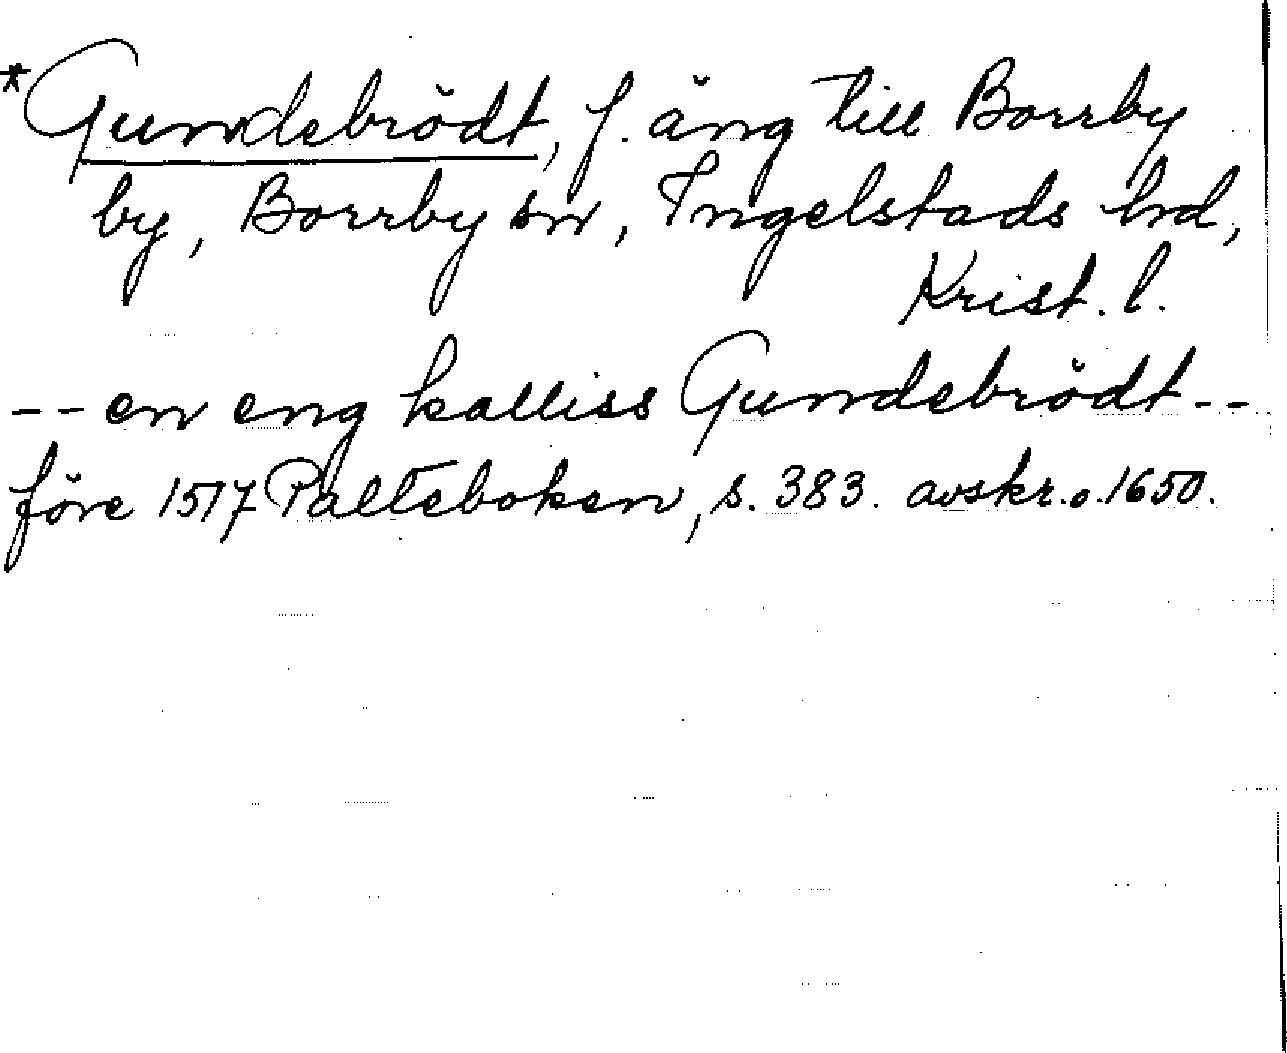 *Gundebrödt, f. äng till Borrby
by, Borrby sn, Ingelstads hd,
Krist. l.
-- en eng kalliss Gundebrödt --
före 1517 Palteboken, s. 383. avskr. o. 1650.